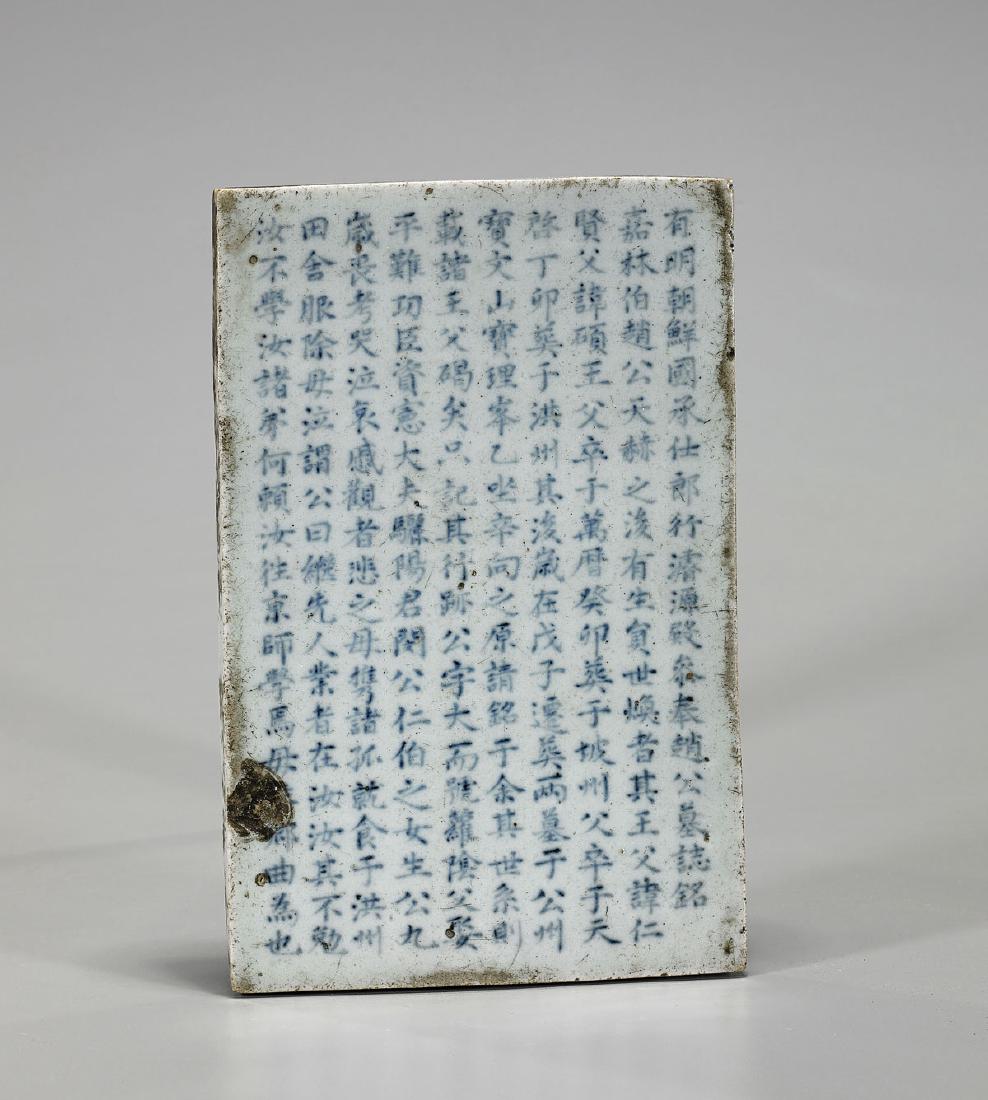 有明朝鮮國承仕郎行濬源殿參奉趙公墓誌銘
嘉林伯趙公天赫之後有生員世煥者其王父諱仁
賢父諱碩王父卒于萬曆癸卯葬于坡州父卒于天
啓丁卯葬于洪州其後歲在戊子遷葬兩墓于公州
寶文山寶理峯乙坐辛向之原請銘于余其世系則
載諸王父碣矣只記其行跡公字大而號蘿陰父娶
平難功臣資憲大夫驪陽君閔公仁伯之女生公九
歲喪考哭泣哀慼觀者悲之母携諸孤就食于洪州
田舍服除母泣謂公曰繼先人業者在汝汝其不勉
汝不學汝諸弟何賴汝往京師學焉毋鄉曲為也